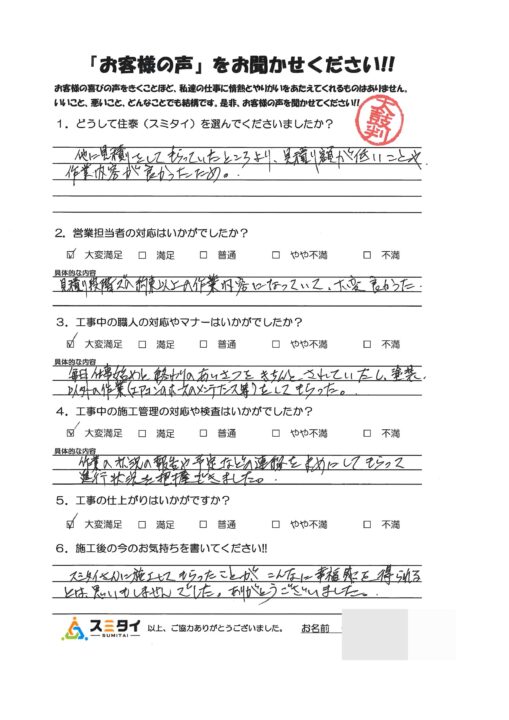 「お客様の声」をお聞かせください!!
お客様の喜びの声をきくことほど、私達の仕事に情熱とやりがいをあたえてくれるものはありません。
いいこと、悪いこと、どんなことでも結構です。是非、お客様の声を聞かせてください!!
太鼓判
1．どうして住泰（スミタイ）を選んでくださいましたか？
他に見積りをしてもらっていたところより、見積り額が低いことや、
作業内容が良かったため。
2．営業担当者の対応はいかがでしたか？
☑ 大変満足 □ 満足 □ 普通 □ やや不満 □ 不満
具体的な内容
見積り段階での約束以上の作業内容になっていて、大変良かった。
3．工事中の職人の対応やマナーはいかがでしたか？
☑ 大変満足 □ 満足 □ 普通 □ やや不満 □ 不満
具体的な内容
毎日仕事始めと終わりのあいさつをきちんとされていたし、塗装
以外の作業(エアコンのホースのメンテナンス等)をしてもらった。
4．工事中の施工管理の対応や検査はいかがでしたか？
☑ 大変満足 □ 満足 □ 普通 □ やや不満 □ 不満
具体的な内容
作業の状況の報告や予定などの連絡をまめにしてもらって
進行状況を把握できました。
5．工事の仕上がりはいかがですか？
☑ 大変満足 □ 満足 □ 普通 □ やや不満 □ 不満
6．施工後の今のお気持ちを書いてください!!
スミタイさんに施工してもらったことが、こんなに幸福感を得られる
とは思いもしませんでした。ありがとうございました。
スミタイ 以上、ご協力ありがとうございました。 お名前
SUMITAI